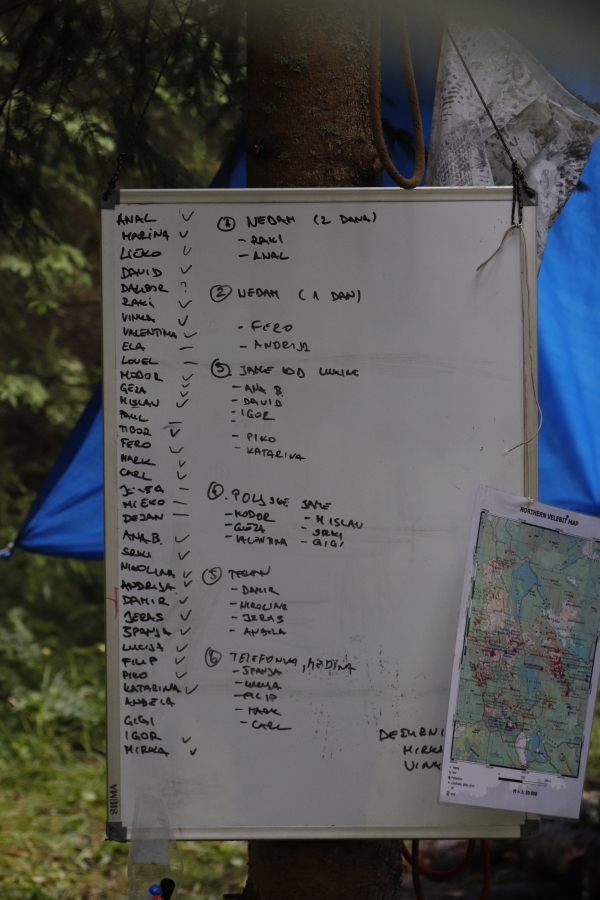 ANAL ✓
MARINA ✓
LIEKO ✓
DAVID ✓
DALIBOR ?
RAKI ✓
VINKA ✓
VALENTINA ✓
ELA –
LOVEL –
MODOR ✓
GÉZA ✓
MISLAV ✓
PAUL –
TIBOR ✓
FERO ✓
MARK ✓
CARL ✓
–
MIEKO –
DEJAN –
ANA B. ✓
SRKI ✓
NIKOLINA ✓
ANDRIJA ✓
DAMIR ✓
JERAS ✓
ŠPANJA ✓
LUCIJA ✓
FILIP ✓
PIKO ✓
KATARINA ✓
ANĐELA
GIGI
IGOR ✓
MIRKA ✓
① NEDAM (2 DANA)
- RAKI
- ANAL
② NEDAM (1 DAN)
- FERO
- ANDRIJA
③ JAME KOD LUKINE
- ANA B.
- DAVID
- IGOR
- PIKO
- KATARINA
④. POLJSKE JAME
- MODOR - MISLAV
- GÉZA - SRKI
- VALENTINA - GIGI
⑤ TEREN
- DAMIR
- NIKOLINA
- JERAS
- ANĐELA
⑥ TELEFONIJA, MEDINA
- ŠPANJA
- LUCIJA
- FILIP
- MARK
- CARL
DEŽURNI
MIRKA
VINK
NORTHERN VELEBIT MAP
SIGMA